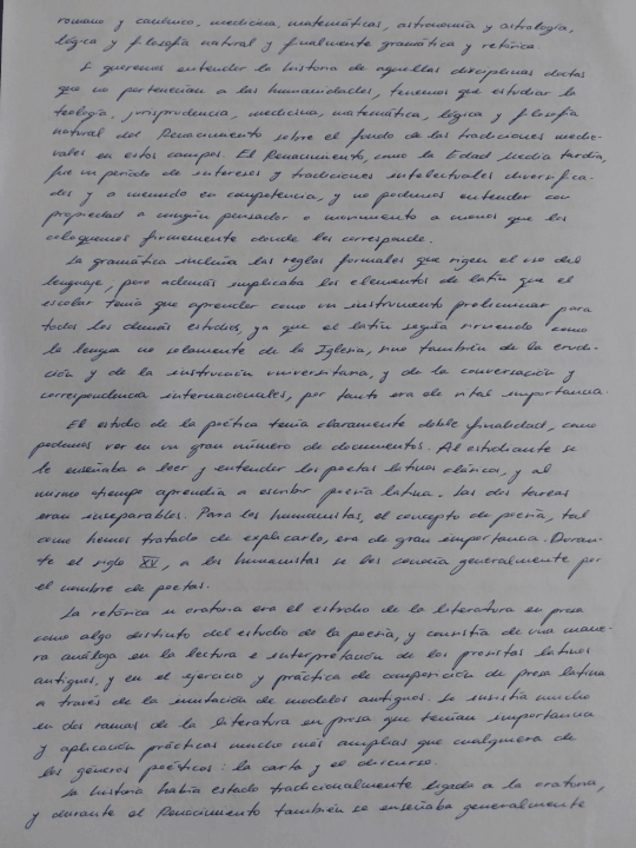 romano y canónico, medicina, matemáticas, astronomía y astrología,
lógica y filosofía natural y finalmente gramática y retórica.
Si queremos entender la historia de aquellas disciplinas doctas
que no pertenecían a las humanidades, tenemos que estudiar la
teología, jurisprudencia, medicina, matemática, lógica y filosofía
natural del Renacimiento sobre el fondo de las tradiciones medie-
vales en estos campos. El Renacimiento, como la Edad Media tardía,
fue un período de intereses y tradiciones intelectuales diversifica-
dos y a menudo en competencia, y no podemos entender con
propiedad a ningún pensador o movimiento a menos que los
coloquemos firmemente donde les corresponde.
La gramática incluía las reglas formales que rigen el uso del
lenguaje, pero además implicaba los elementos de latín que el
escolar tenía que aprender como un instrumento preliminar para
todos los demás estudios, ya que el latín seguía sirviendo como
la lengua no solamente de la Iglesia, sino también de la erudi-
ción y de la instrucción universitaria, y de la conversación y
correspondencia internacionales, por tanto era de vital importancia.
El estudio de la poética tenía claramente doble finalidad, como
podemos ver en un gran número de documentos. Al estudiante se
le enseñaba a leer y entender los poetas latinos clásicos, y al
mismo tiempo aprendía a escribir poesía latina. Las dos tareas
eran inseparables. Para los humanistas, el concepto de poesía, tal
como hemos tratado de explicarlo, era de gran importancia. Duran-
te el siglo XV, a los humanistas se les conocía generalmente por
el nombre de poetas.
La retórica u oratoria era el estudio de la literatura en prosa
como algo distinto del estudio de la poesía, y consistía de una mane-
ra análoga en la lectura e interpretación de los prosistas latinos
antiguos, y en el ejercicio y práctica de composición de prosa latina
a través de la imitación de modelos antiguos. Se insistía mucho
en dos ramas de la literatura en prosa que tenían importancia
y aplicación prácticas mucho más amplias que cualquiera de
los géneros poéticos: la carta y el discurso.
La historia había estado tradicionalmente ligada a la oratoria,
y durante el Renacimiento también se enseñaba generalmente